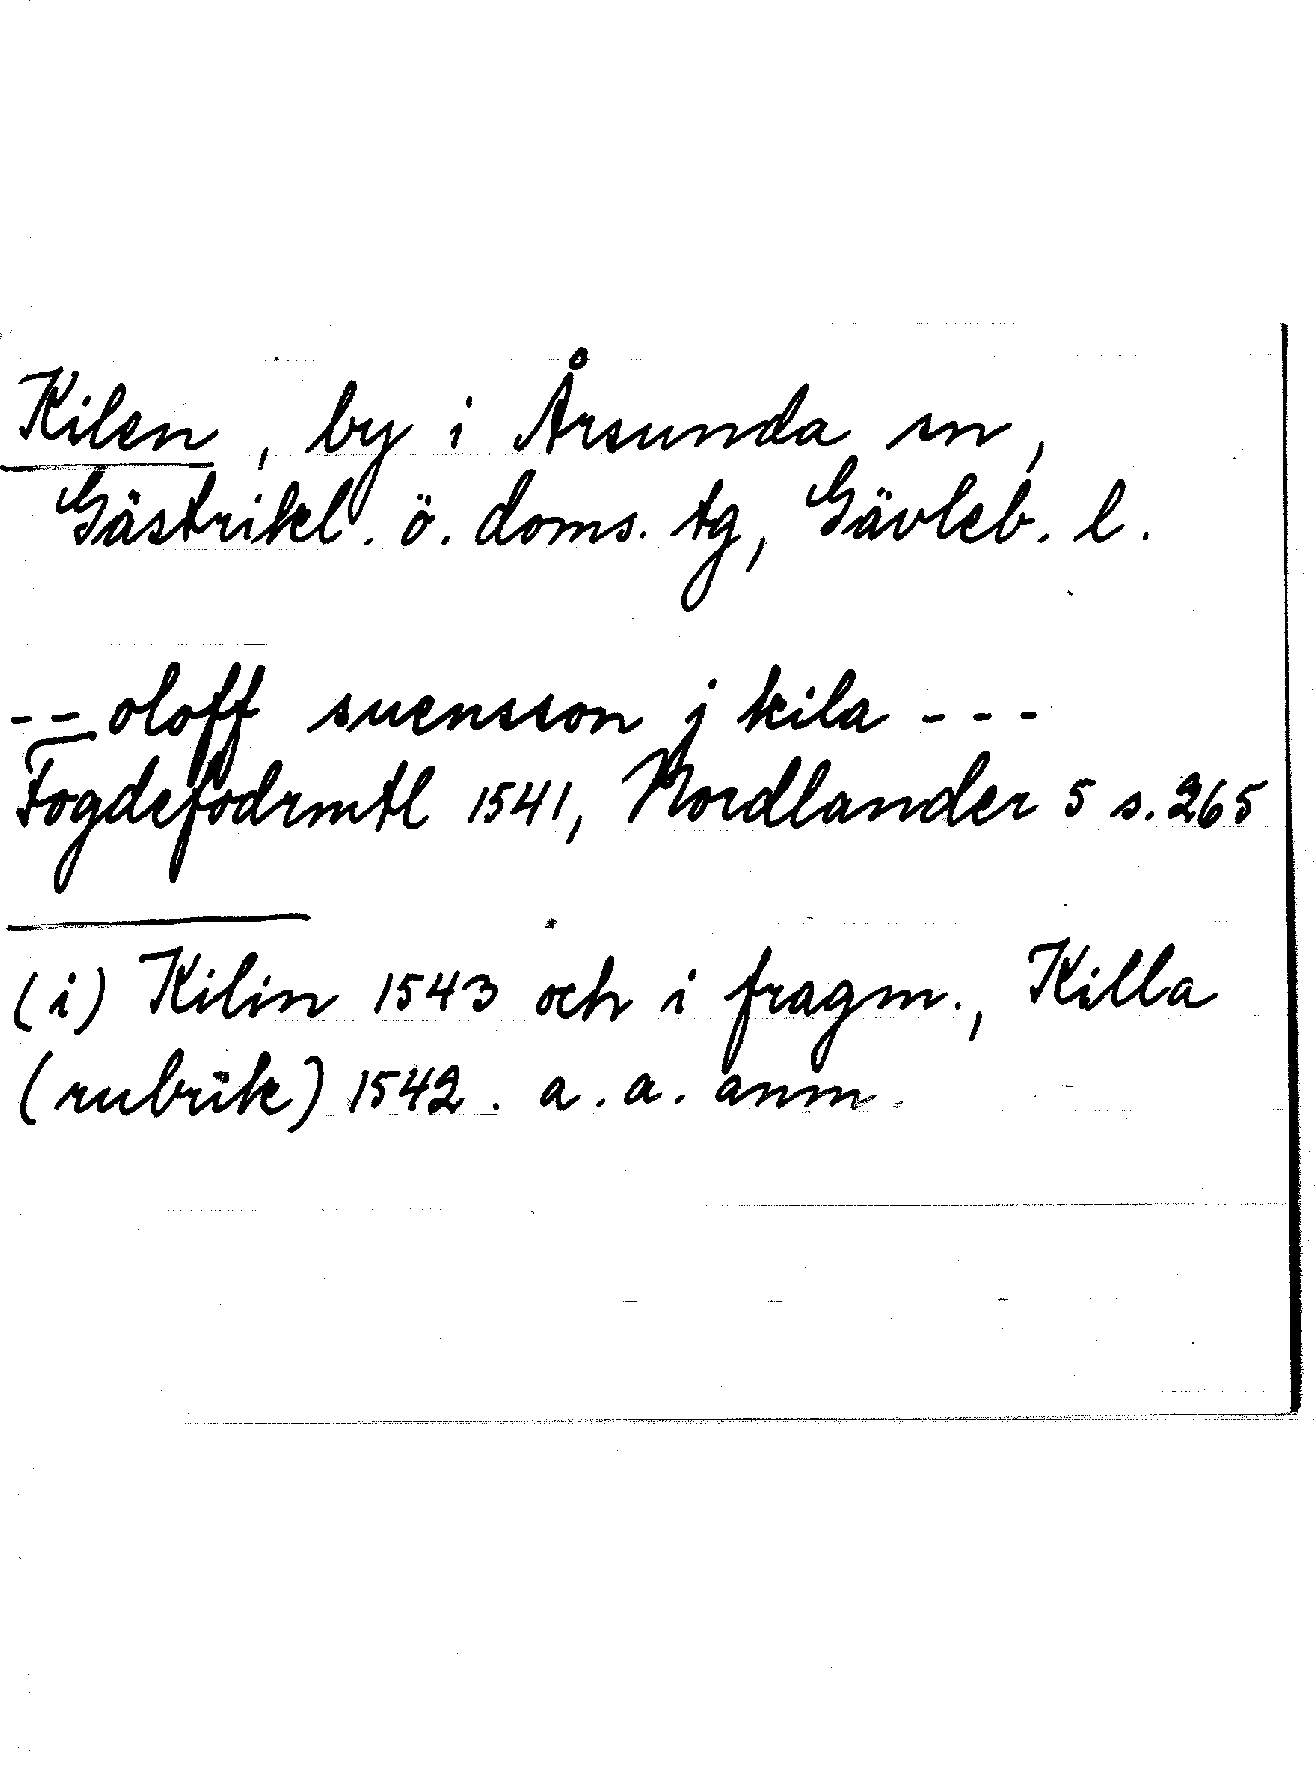 Kilen, by i Årsunda sn,
Gästrikl. ö. doms. tg, Gävleb. l.
-- oloff suensson j kila ---
Fogdefodrmtl 1541, Nordlander 5 s. 265
(i) Kilin 1543 och i fragm., Killa
(rubrik) 1542. a. a. anm.